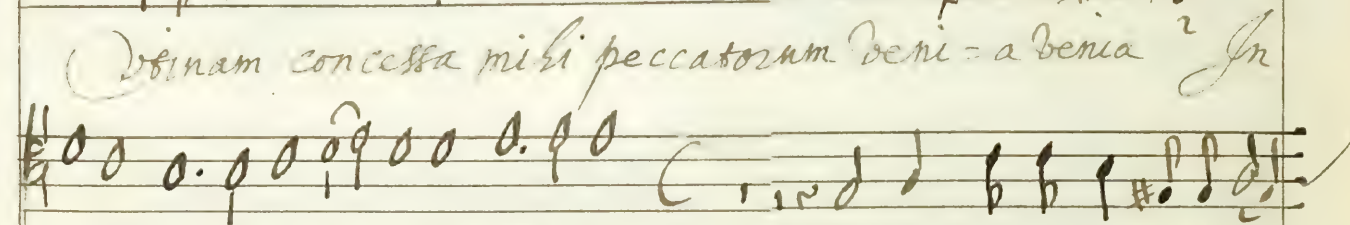 Vtinam concessa mihi peccatorum veni=a venia In